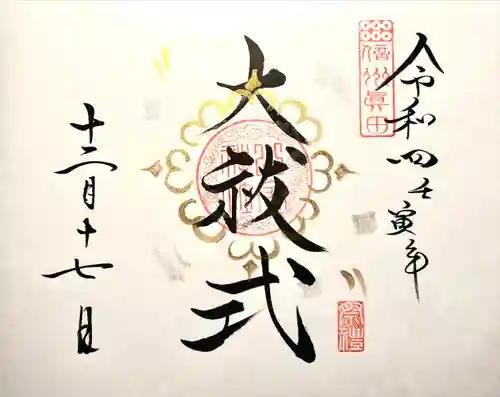 令和四壬寅年
信州眞田
大祓式
祭禮
十二月十七日